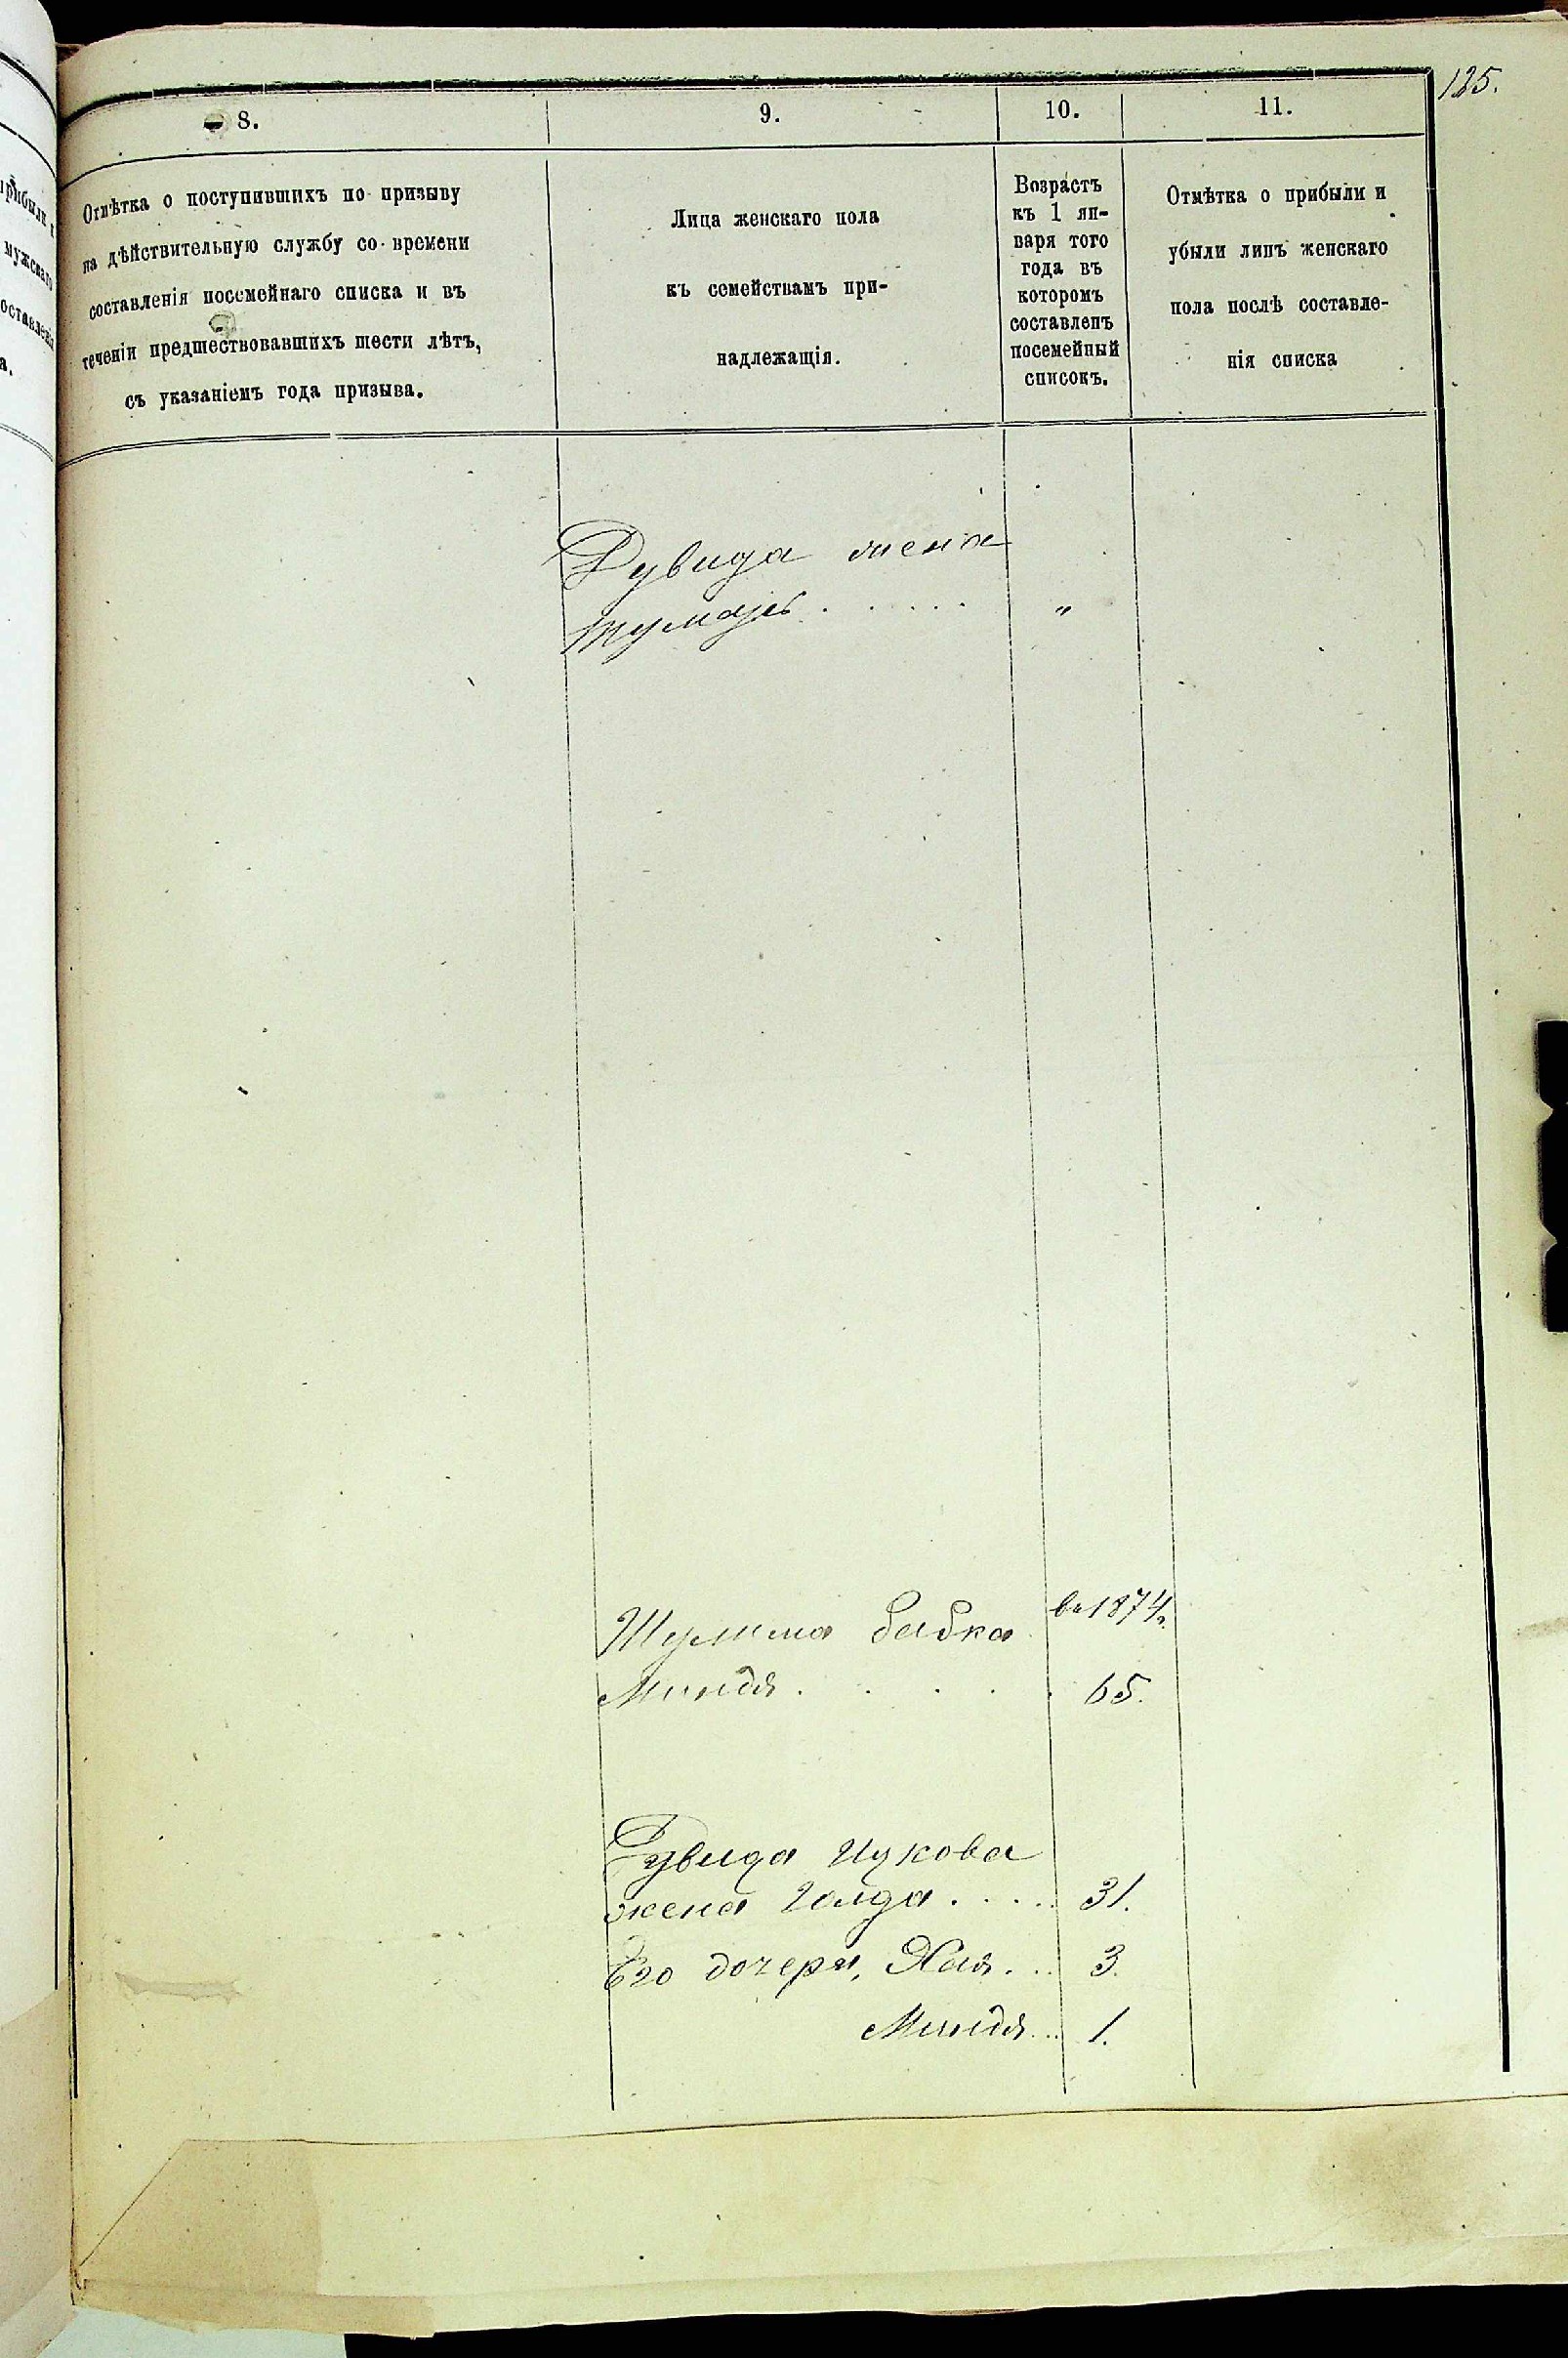 125.
8.
9.
10.
11.
Отмѣтка о поступившихъ по призыву
на дѣйствительную службу со времени
составленія посемейнаго списка и въ
теченіи предшествовавшихъ шести лѣтъ,
съ указаніемъ года призыва.
Лица женскаго пола
къ семействамъ при-
надлежащія.
Возрастъ
къ 1 ян-
варя того
года въ
которомъ
составленъ
посемейный
списокъ.
Отмѣтка о прибыли и
убыли лицъ женскаго
пола послѣ составле-
нія списка
прибыли и
мужскаго
составленія
а.
Дувида жена
. . . . . "
бабка въ 1874г.
Миндя . . . . . 65.
Дувида Ицкова
жена Голда . . . . 31.
Его дочери, Хая . . . 3.
Миндя . . . 1.